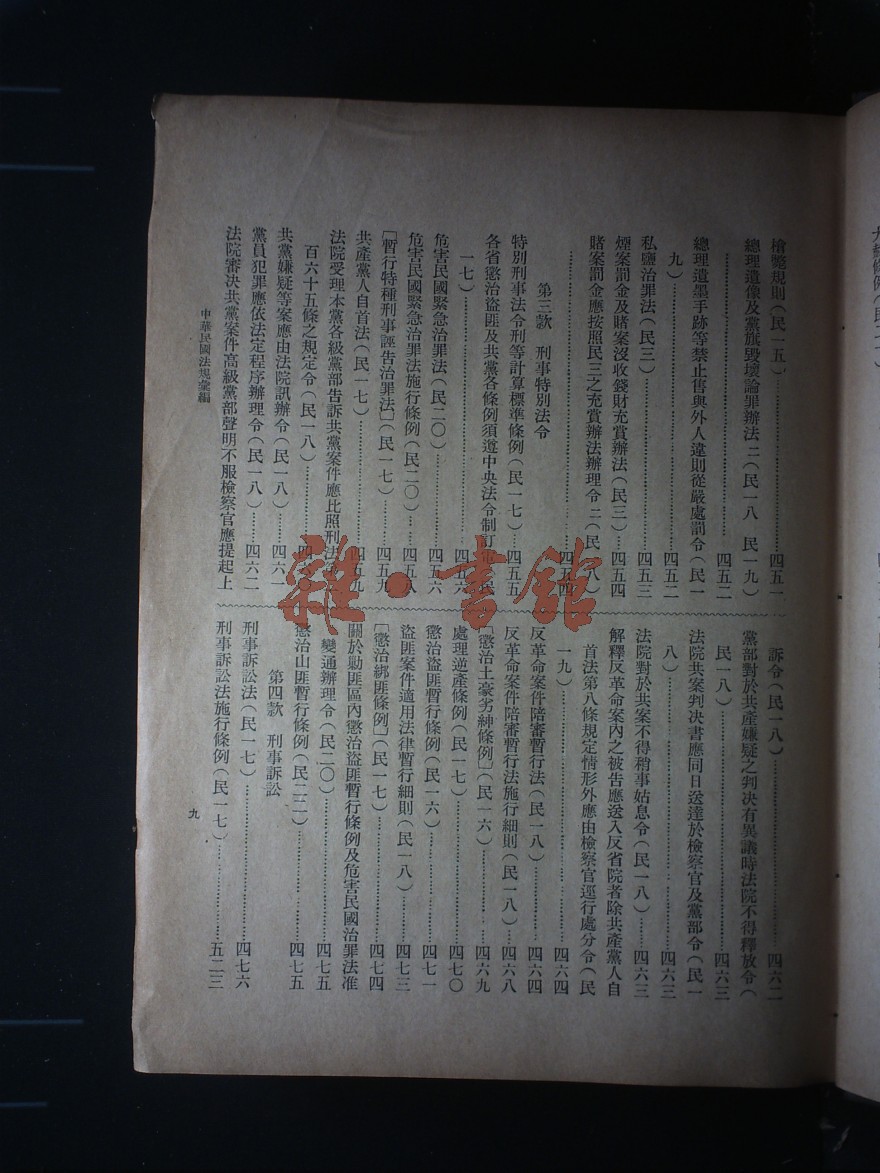 槍斃規則(民一五)……四五一
總理遺像及黨旗毀壞論罪辦法二(民一八 民一九)
……四五二
總理遺墨手跡等禁止售與外人違則從嚴處罰令(民一
九)……四五二
私鹽治罪法(民三)……四五三
煙案罰金及賭案沒收錢財充賞辦法(民三)……四五四
賭案罰金應按照民三之充賞辦法辦理令二(民一八)
……四五四
第三款 刑事特別法令
特別刑事法令刑等計算標準條例(民一七)……四五五
各省懲治盜匪及共黨各條例須遵中央法令制訂
一七)……四五六
危害民國緊急治罪法(民二〇)……四五六
危害民國緊急治罪法施行條例(民二〇)……四五八
[暫行特種刑事誣告治罪法](民一七)……四五九
共產黨人自首法(民一七)……四五九
法院受理本黨各級黨部告訴共黨案件應比照刑法
百六十五條之規定令(民一八)……四六
共黨嫌疑等案應由法院訊辦令(民一八)……四六一
黨員犯罪應依法定程序辦理令(民一八)……四六二
法院審決共黨案件高級黨部聲明不服檢察官應提起上
訴令(民一八)……四六二
黨部對於共產嫌疑之判决有異議時法院不得釋放令(
民一八)……四六三
法院共案判決書應同日送達於檢察官及黨部令(民一
八)……四六三
法院對於共案不得稍事姑息令(民一八)……四六三
解釋反革命案內之被告應送入反省院者除共產黨人自
首法第八條規定情形外應由檢察官逕行處分令(民
一九)……四六四
反革命案件陪審暫行法(民一八)……四六四
反革命案件陪審暫行法施行細則(民一八)……四六八
[懲治土豪劣紳條例](民一六)……四六九
處理逆產條例(民一七)……四七〇
懲治盜匪暫行條例(民一六)……四七一
盜匪案件適用法律暫行細則(民一八)……四七三
[懲治綁匪條例](民一七)……四七四
關於勦匪區內懲治盜匪暫行條例及危害民國治罪法准
變通辦理令(民二〇)……四七五
懲治山匪暫行條例(民二二)……四七五
第四款 刑事訴訟
刑事訴訟法(民一七)……四七六
刑事訴訟法施行條例(民一七)……五二三
中華民國法規彙編
九
雜·書館